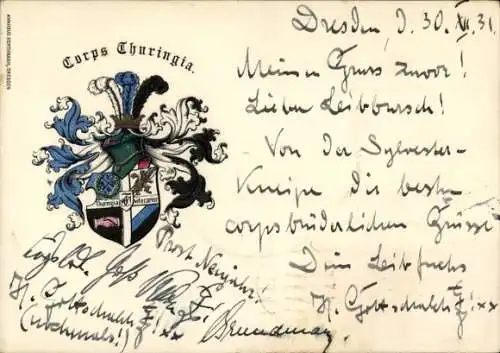 ANANIAS HOFFMANN, DRESDEN
Corps Thuringia.
Thuringia
Dresden, d. 30. XII. 31.
Meinen Gruss zuvor!
Lieber Leibbursch!
Von der Sylvester-
Kneipe dir beste
corpsbrüderlichen Grüsse
Dein Leibfuchs
H. Gottschalch xx
Prost Neujahr!
H. Gottschalch xx
(nochmals!)